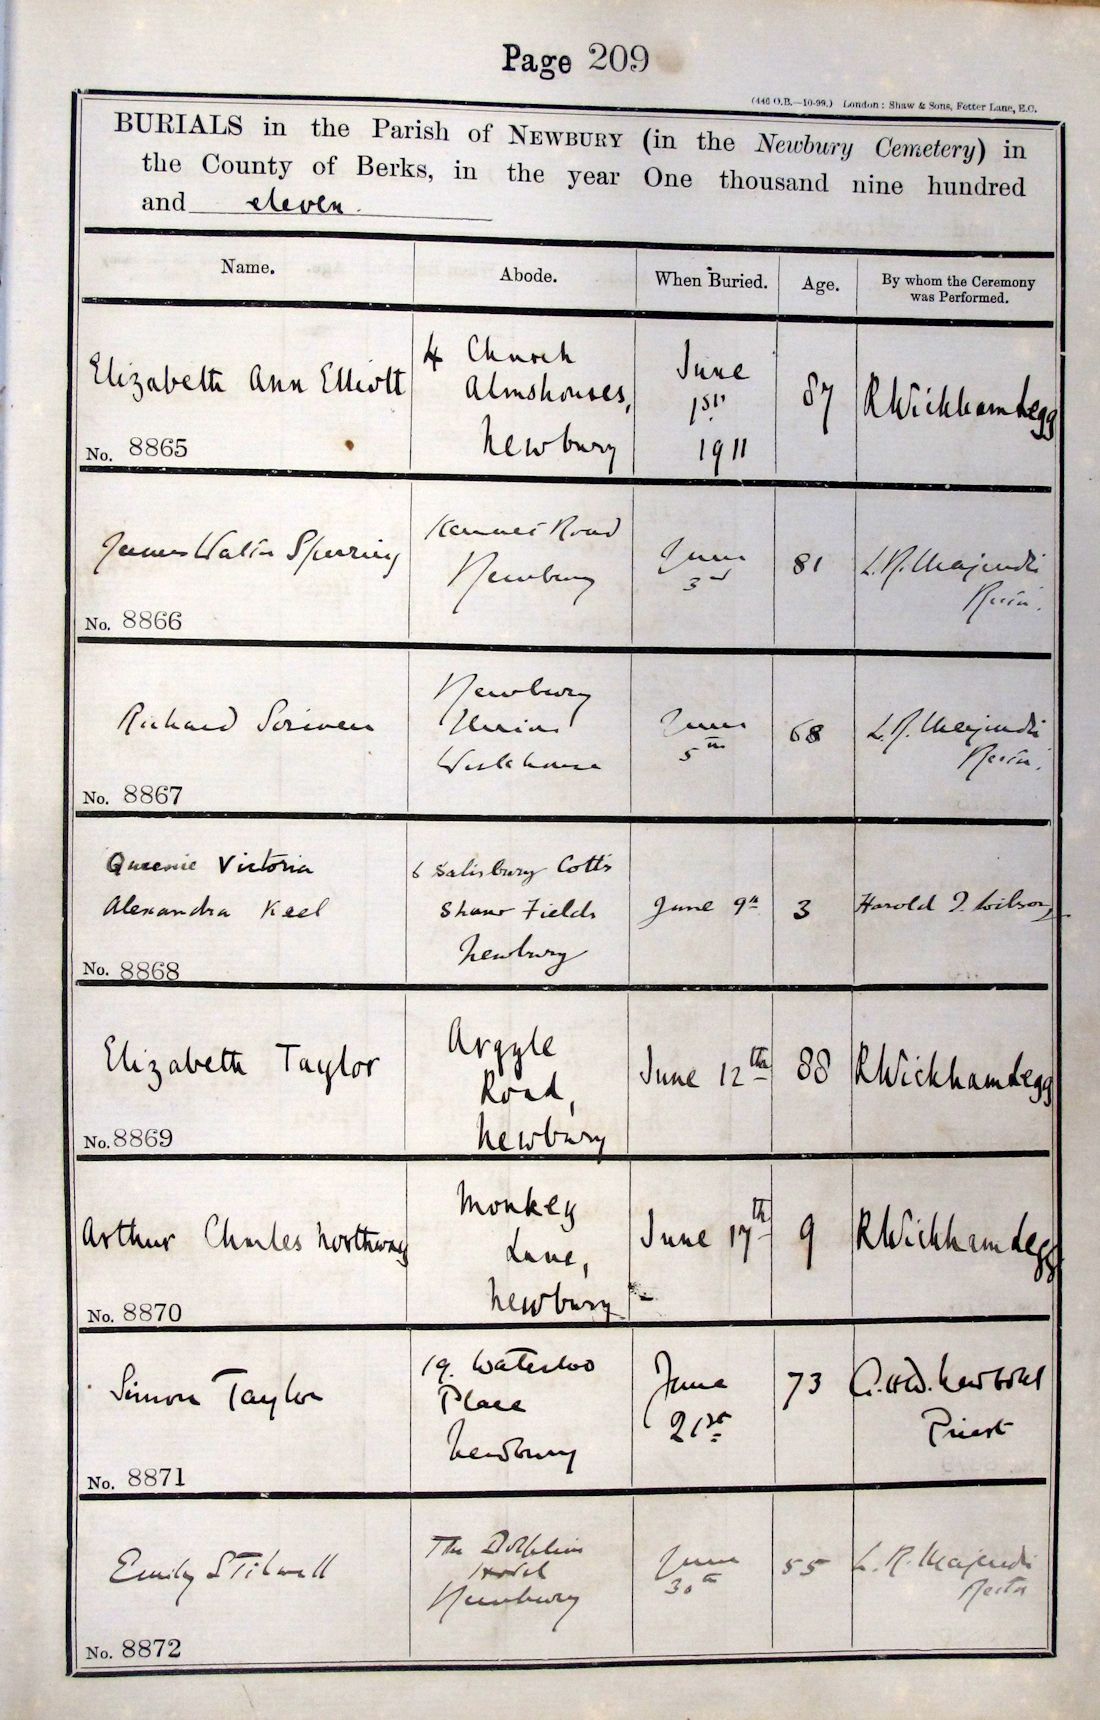 Page 209
(446 O.B.—10-99.) London: Shaw & Sons, Fetter Lane, E.C.
BURIALS in the Parish of NEWBURY (in the Newbury Cemetery) in
the County of Berks, in the year One thousand nine hundred
and eleven.
Name.
Abode.
When Buried.
Age.
By whom the Ceremony
was Performed.
Elizabeth Ann Elliott
No. 8865
4 Church
Almshouses,
Newbury
June
1st
1911
87
R Wickham Legg
James Walter Sperring
No. 8866
Kennet Road
Newbury
June
3rd
81
L. R. Majendie
Rector.
Richard Scriven
No. 8867
Newbury
Union
Workhouse
June
5th
68
L. R. Majendie
Rector.
Queenie Victoria
Alexandra Keel
No. 8868
6 Salisbury Cotts
Shaw Fields
Newbury
June 9th
3
Harold T. Wilson
Elizabeth Taylor
No. 8869
Argyle
Road,
Newbury
June 12th
88
R Wickham Legg
Arthur Charles Northway
No. 8870
Monkey
Lane,
Newbury
June 17th
9
R Wickham Legg
Simon Taylor
No. 8871
19. Waterloo
Place
Newbury
June
21st
73
Priest
Emily Stilwell
No. 8872
The Dolphin
Hotel
Newbury
June
30th
55
L. R. Majendie
Rector